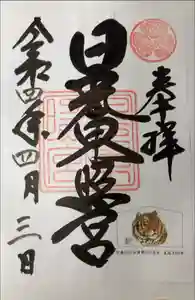 奉拝
日光東照宮
令和四年四月三日